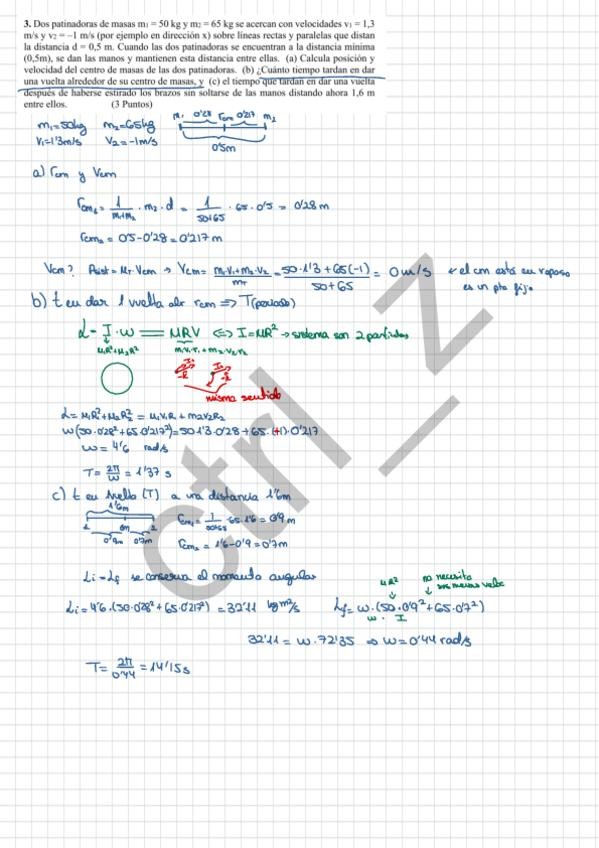 3. Dos patinadoras de masas m₁ = 50 kg y m₂ = 65 kg se acercan con velocidades v₁ = 1,3
m/s y v₂ = −1 m/s (por ejemplo en dirección x) sobre líneas rectas y paralelas que distan
la distancia d = 0,5 m. Cuando las dos patinadoras se encuentran a la distancia mínima
(0,5m), se dan las manos y mantienen esta distancia entre ellas. (a) Calcula posición y
velocidad del centro de masas de las dos patinadoras. (b) ¿Cuánto tiempo tardan en dar
una vuelta alrededor de su centro de masas, y (c) el tiempo que tardan en dar una vuelta
después de haberse estirado los brazos sin soltarse de las manos distando ahora 1,6 m
entre ellos. (3 Puntos)
m₁=50kg m₂=65kg m₁ 0'28 rcm 0'217 m₂
v₁=1'3m/s v₂=-1m/s 0'5m
a) rcm y vcm
rcm₁ = 1/(m₁+m₂) · m₂ · d = 1/(50+65) · 65 · 0'5 = 0'28 m
rcm₂ = 0'5-0'28 = 0'217 m
Vcm? Psist = MT·Vcm → Vcm = (m₁·v₁+m₂·v₂)/mT = (50·1'3+65(-1))/(50+65) = 0 m/s el cm está en reposo
es un pto fijo
b) t en dar 1 vuelta alr rcm ⇒ T(periodo)
L = I·w = MRV ⇔ I=MR² → sistema son 2 partículas
M₁R²+M₂R² m₁·v₁·r₁+m₂·v₂·r₂
mismo sentido
L = M₁R²+M₂R₂² = M₁V₁R₁+m₂V₂R₂
w(50·0'28²+65·0'217²)=50·1'3·0'28+65·(+1)·0'217
w = 4'6 rad/s
T = 2π/w = 1'37 s
c) t en vuelta (T) a una distancia 1'6m
1'6m
1 cm 2
0'9m 0'7m
rcm₁ = 1/(50+65) · 65·1'6 = 0'9 m
rcm₂ = 1'6-0'9 = 0'7m
Li = Lf se conserva el momento angular
MR² no necesita
Li = 4'6·(50·0'28²+65·0'217²) = 32'11 kg m²/s Lf = w·(50·0'9²+65·0'7²)
w · I
32'11 = w·72'35 ⇒ w=0'44 rad/s
T = 2π/0'44 = 14'15s
ctrl_z